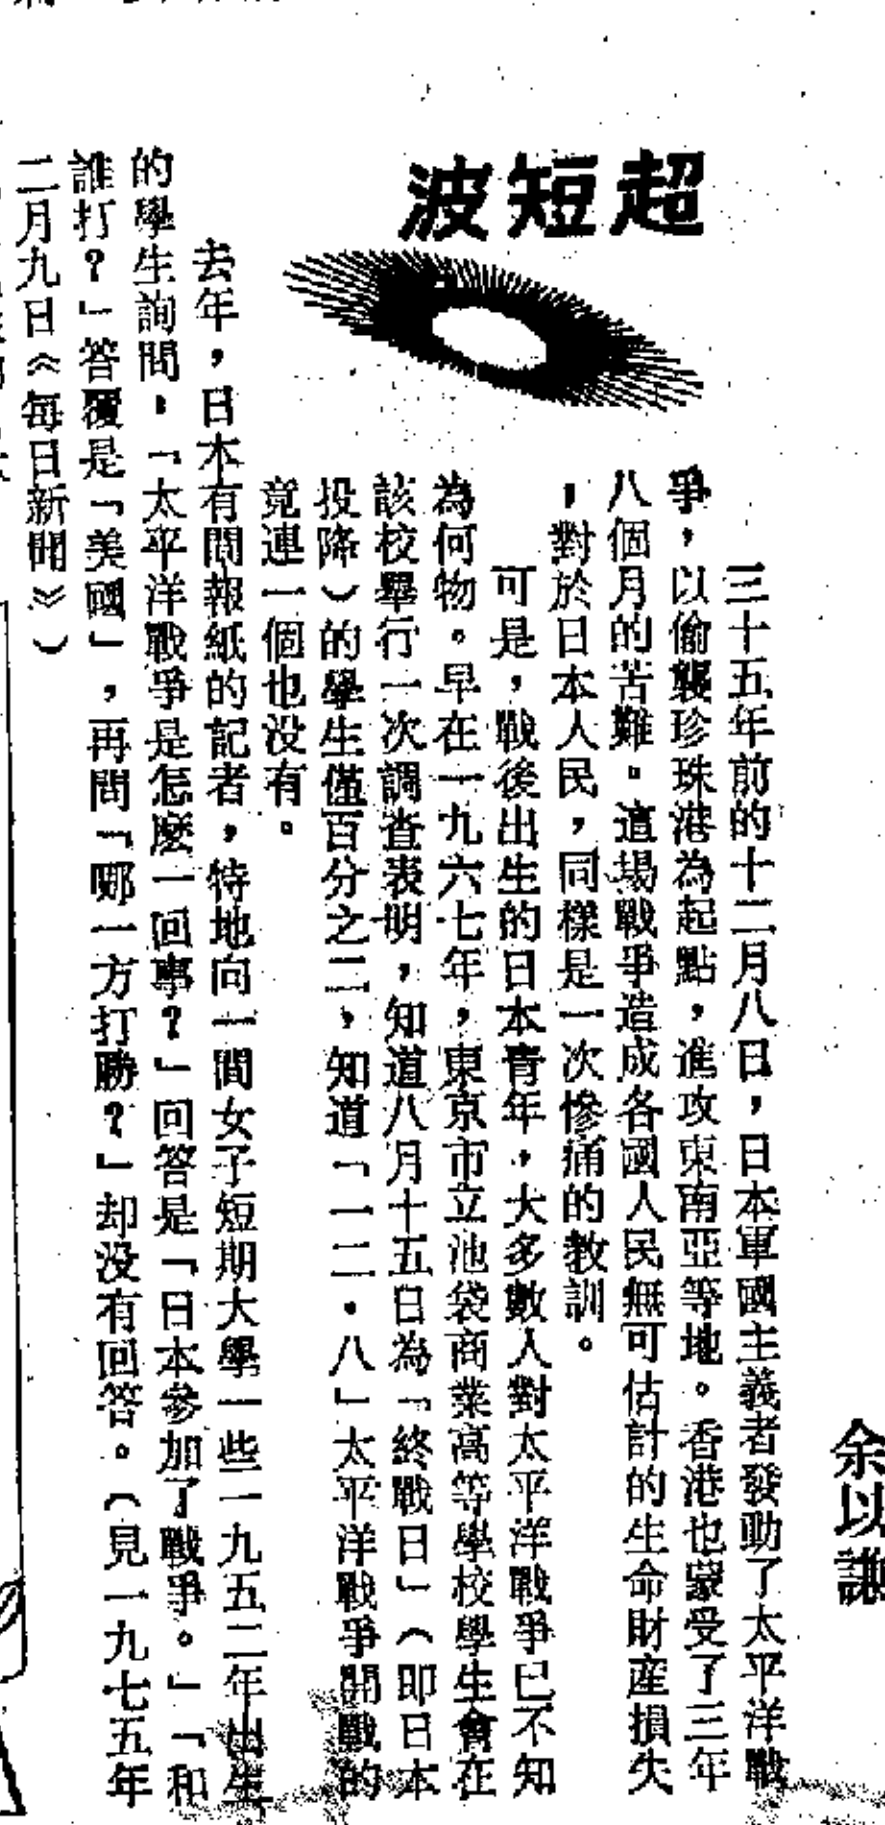 超短波
余以謙
三十五年前的十二月八日，日本軍國主義者發動了太平洋戰
爭，以偷襲珍珠港為起點，進攻東南亞等地。香港也蒙受了三年
八個月的苦難。這場戰爭造成各國人民無可估計的生命財産損失
，對於日本人民，同樣是一次慘痛的教訓。
可是，戰後出生的日本青年，大多數人對太平洋戰爭已不知
為何物。早在一九六七年，東京市立池袋商業高等學校學生會在
該校舉行一次調查表明，知道八月十五日為「終戰日」（即日本
投降）的學生僅百分之二，知道「一二・八」太平洋戰爭開戰的
竟連一個也没有。
去年，日本有間報紙的記者，特地向一間女子短期大學一些一九五二年出生
的學生詢問：「太平洋戰爭是怎麼一回事？」回答是「日本參加了戰爭。」「和
誰打？」答覆是「美國」，再問「哪一方打勝？」却没有回答。（見一九七五年
二月九日《每日新聞》）